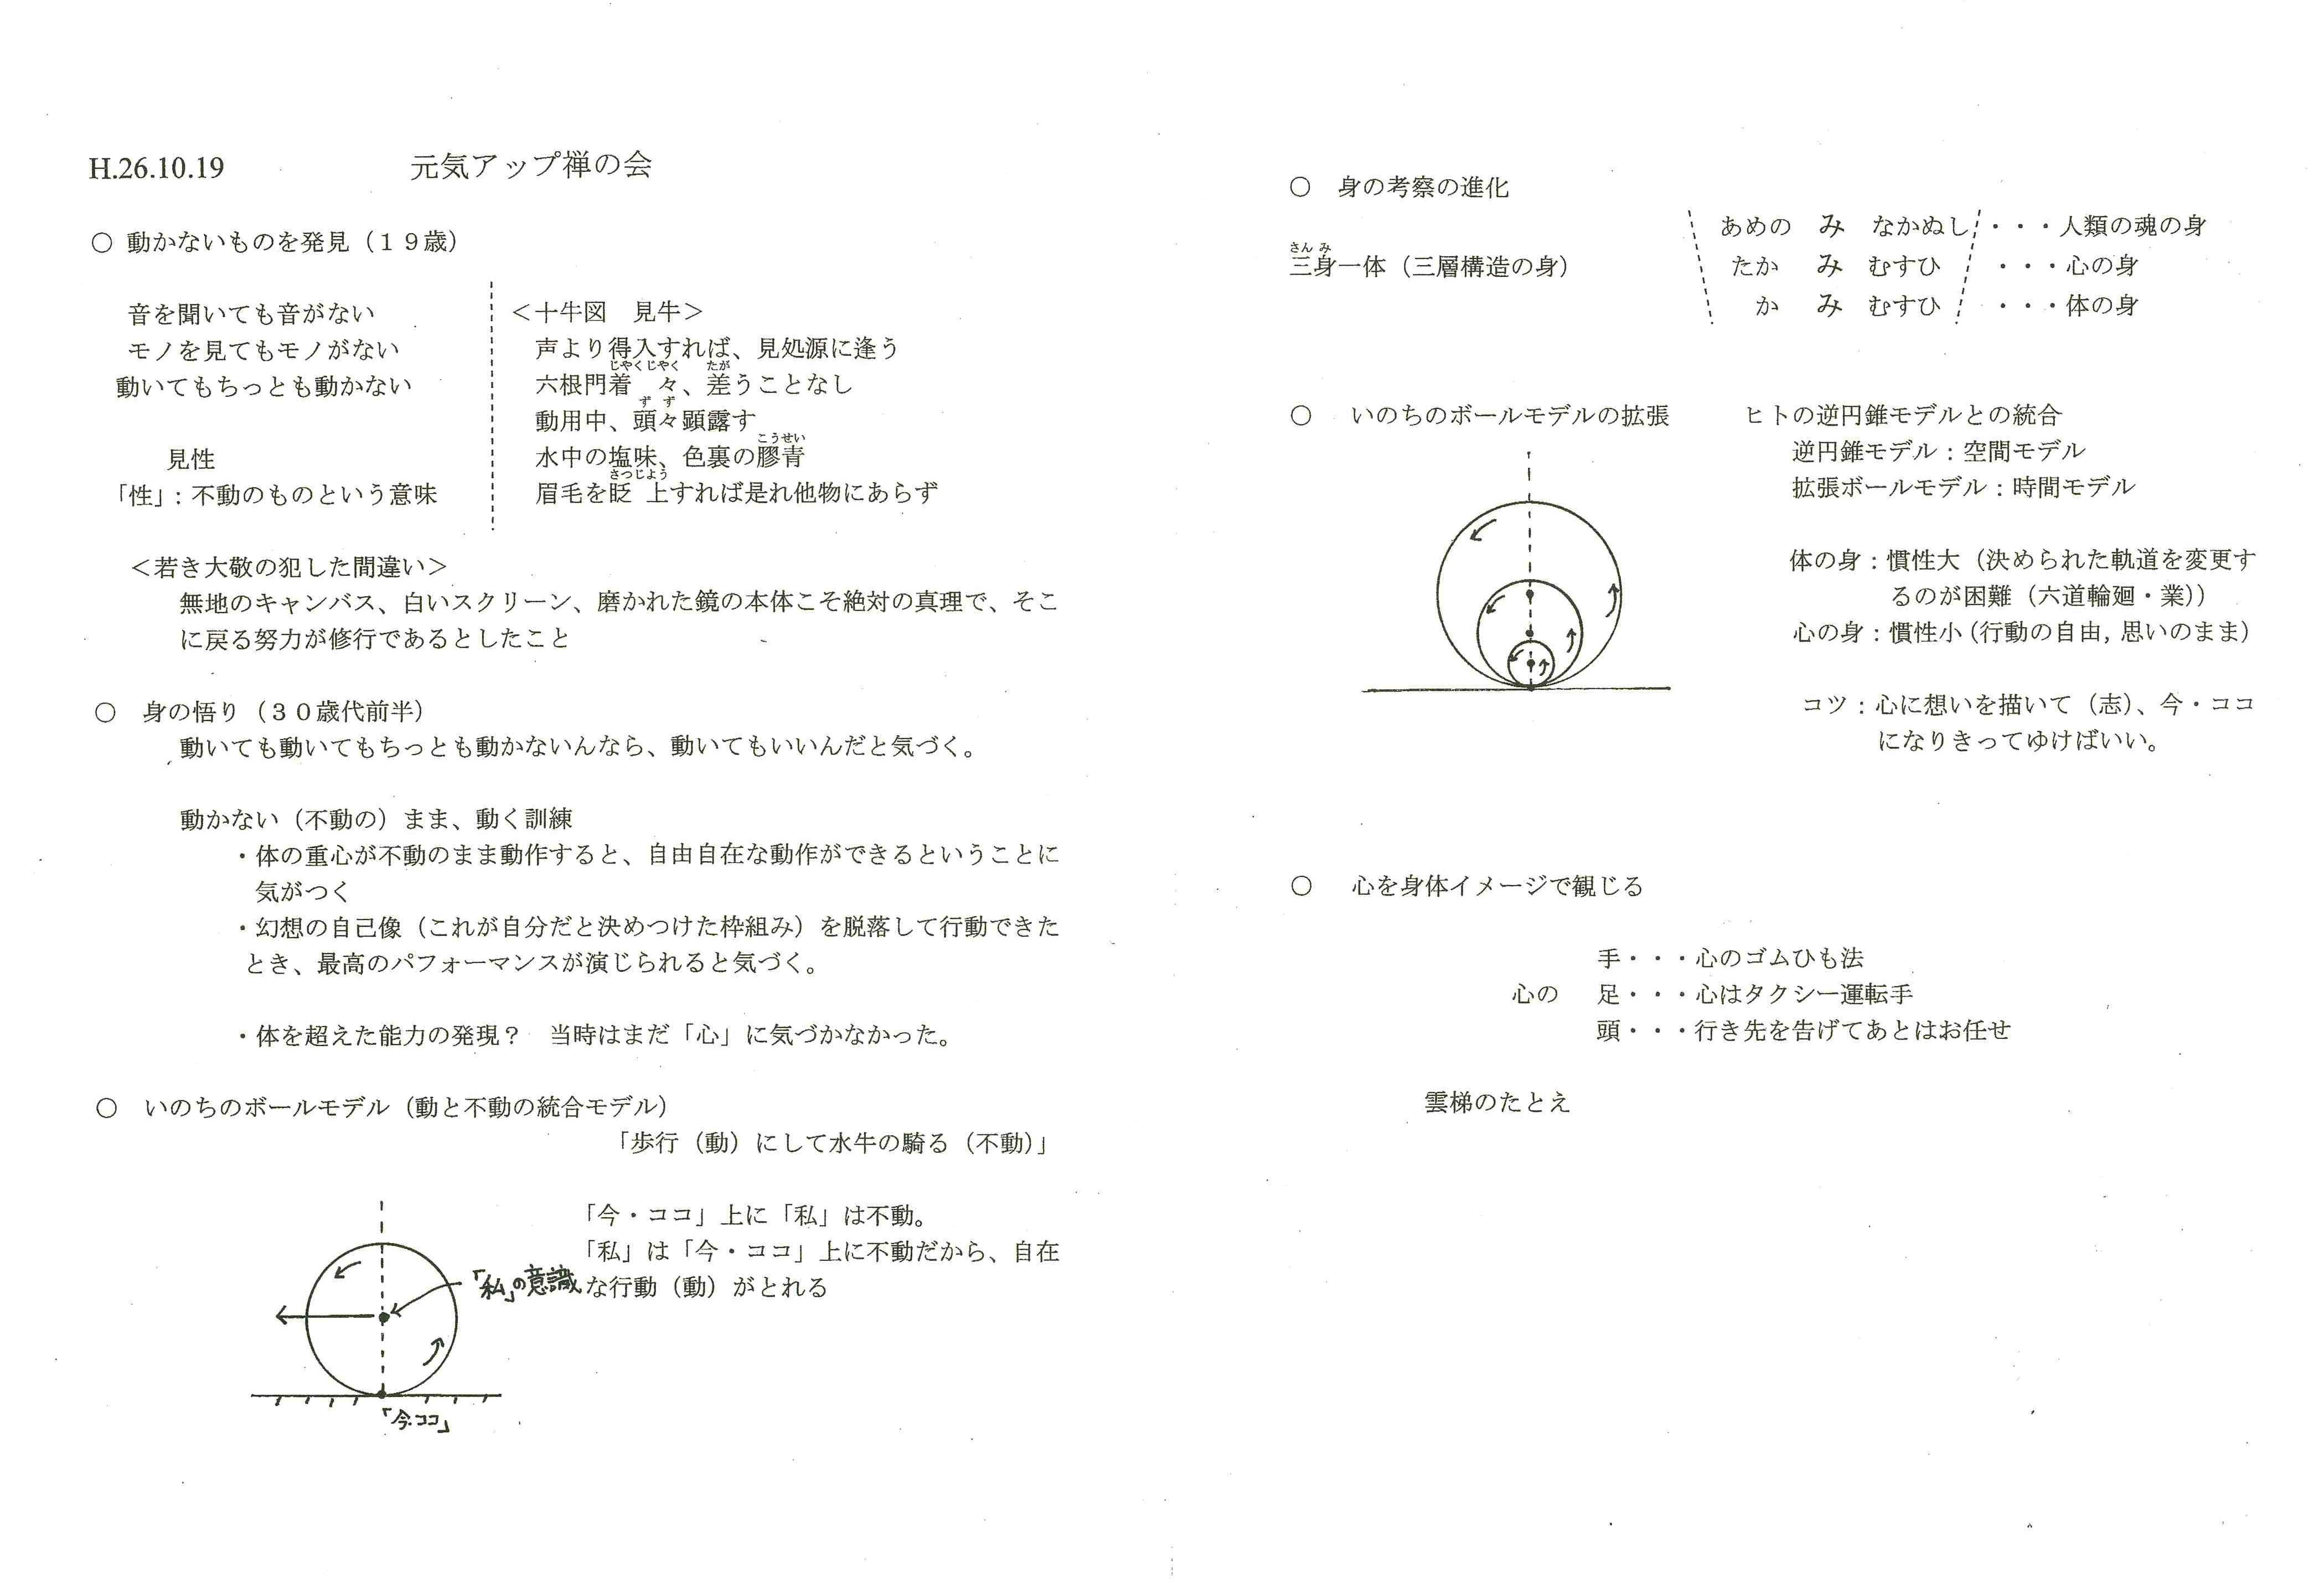 H.26.10.19　元気アップ禅の会
○ 動かないものを発見（１９歳）
音を聞いても音がない
モノを見てもモノがない
動いてもちっとも動かない
見性
「性」：不動のものという意味
＜十牛図　見牛＞
声より得入すれば、見処源に逢う
じゃくじゃく　たが
六根門着々、差うことなし
ずず
動用中、頭々顕露す
こうせい
水中の塩味、色裏の膠青
さつじょう
眉毛を眨上すれば是れ他物にあらず
＜若き大敬の犯した間違い＞
無地のキャンバス、白いスクリーン、磨かれた鏡の本体こそ絶対の真理で、そこ
に戻る努力が修行であるとしたこと
○　身の悟り（３０歳代前半）
動いても動いてもちっとも動かないんなら、動いてもいいんだと気づく。
動かない（不動の）まま、動く訓練
・体の重心が不動のまま動作すると、自由自在な動作ができるということに
気がつく
・幻想の自己像（これが自分だと決めつけた枠組み）を脱落して行動できた
とき、最高のパフォーマンスが演じられると気づく。
・体を超えた能力の発現？　当時はまだ「心」に気づかなかった。
○　いのちのボールモデル（動と不動の統合モデル）
「歩行（動）にして水牛の騎る（不動）」
「今・ココ」上に「私」は不動。
「私」は「今・ココ」上に不動だから、自在
な行動（動）がとれる
「私」の意識
「今・ココ」
○　身の考察の進化
さんみ
三身一体（三層構造の身）
あめの　み　なかぬし・・・人類の魂の身
たか　み　むすひ　・・・心の身
か　み　むすひ　・・・体の身
○　いのちのボールモデルの拡張　ヒトの逆円錐モデルとの統合
逆円錐モデル：空間モデル
拡張ボールモデル：時間モデル
体の身：慣性大（決められた軌道を変更す
るのが困難（六道輪廻・業））
心の身：慣性小（行動の自由，思いのまま）
コツ：心に想いを描いて（志）、今・ココ
になりきってゆけばいい。
○　心を身体イメージで観じる
手・・・心のゴムひも法
心の　足・・・心はタクシー運転手
頭・・・行き先を告げてあとはお任せ
雲梯のたとえ